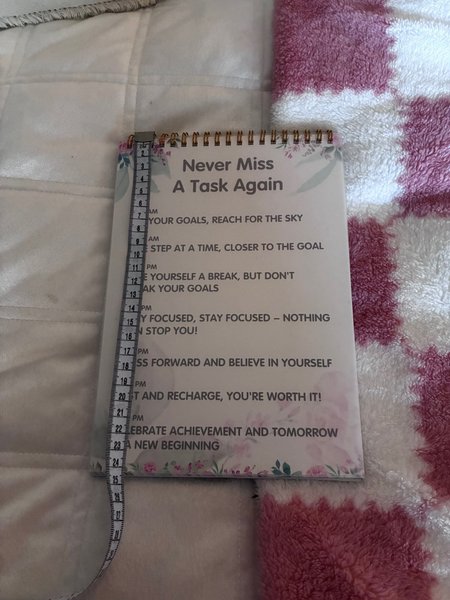 Never Miss
A Task Again
AM
YOUR GOALS, REACH FOR THE SKY
AM
STEP AT A TIME, CLOSER TO THE GOAL
PM
YOURSELF A BREAK, BUT DON'T
YOUR GOALS
PM
FOCUSED, STAY FOCUSED – NOTHING
STOP YOU!
PM
FORWARD AND BELIEVE IN YOURSELF
PM
AND RECHARGE, YOU'RE WORTH IT!
PM
ACHIEVEMENT AND TOMORROW
A NEW BEGINNING
2
3
4
5
6
7
8
9
10
11
12
13
14
15
16
17
18
19
20
21
22
23
24
25
26